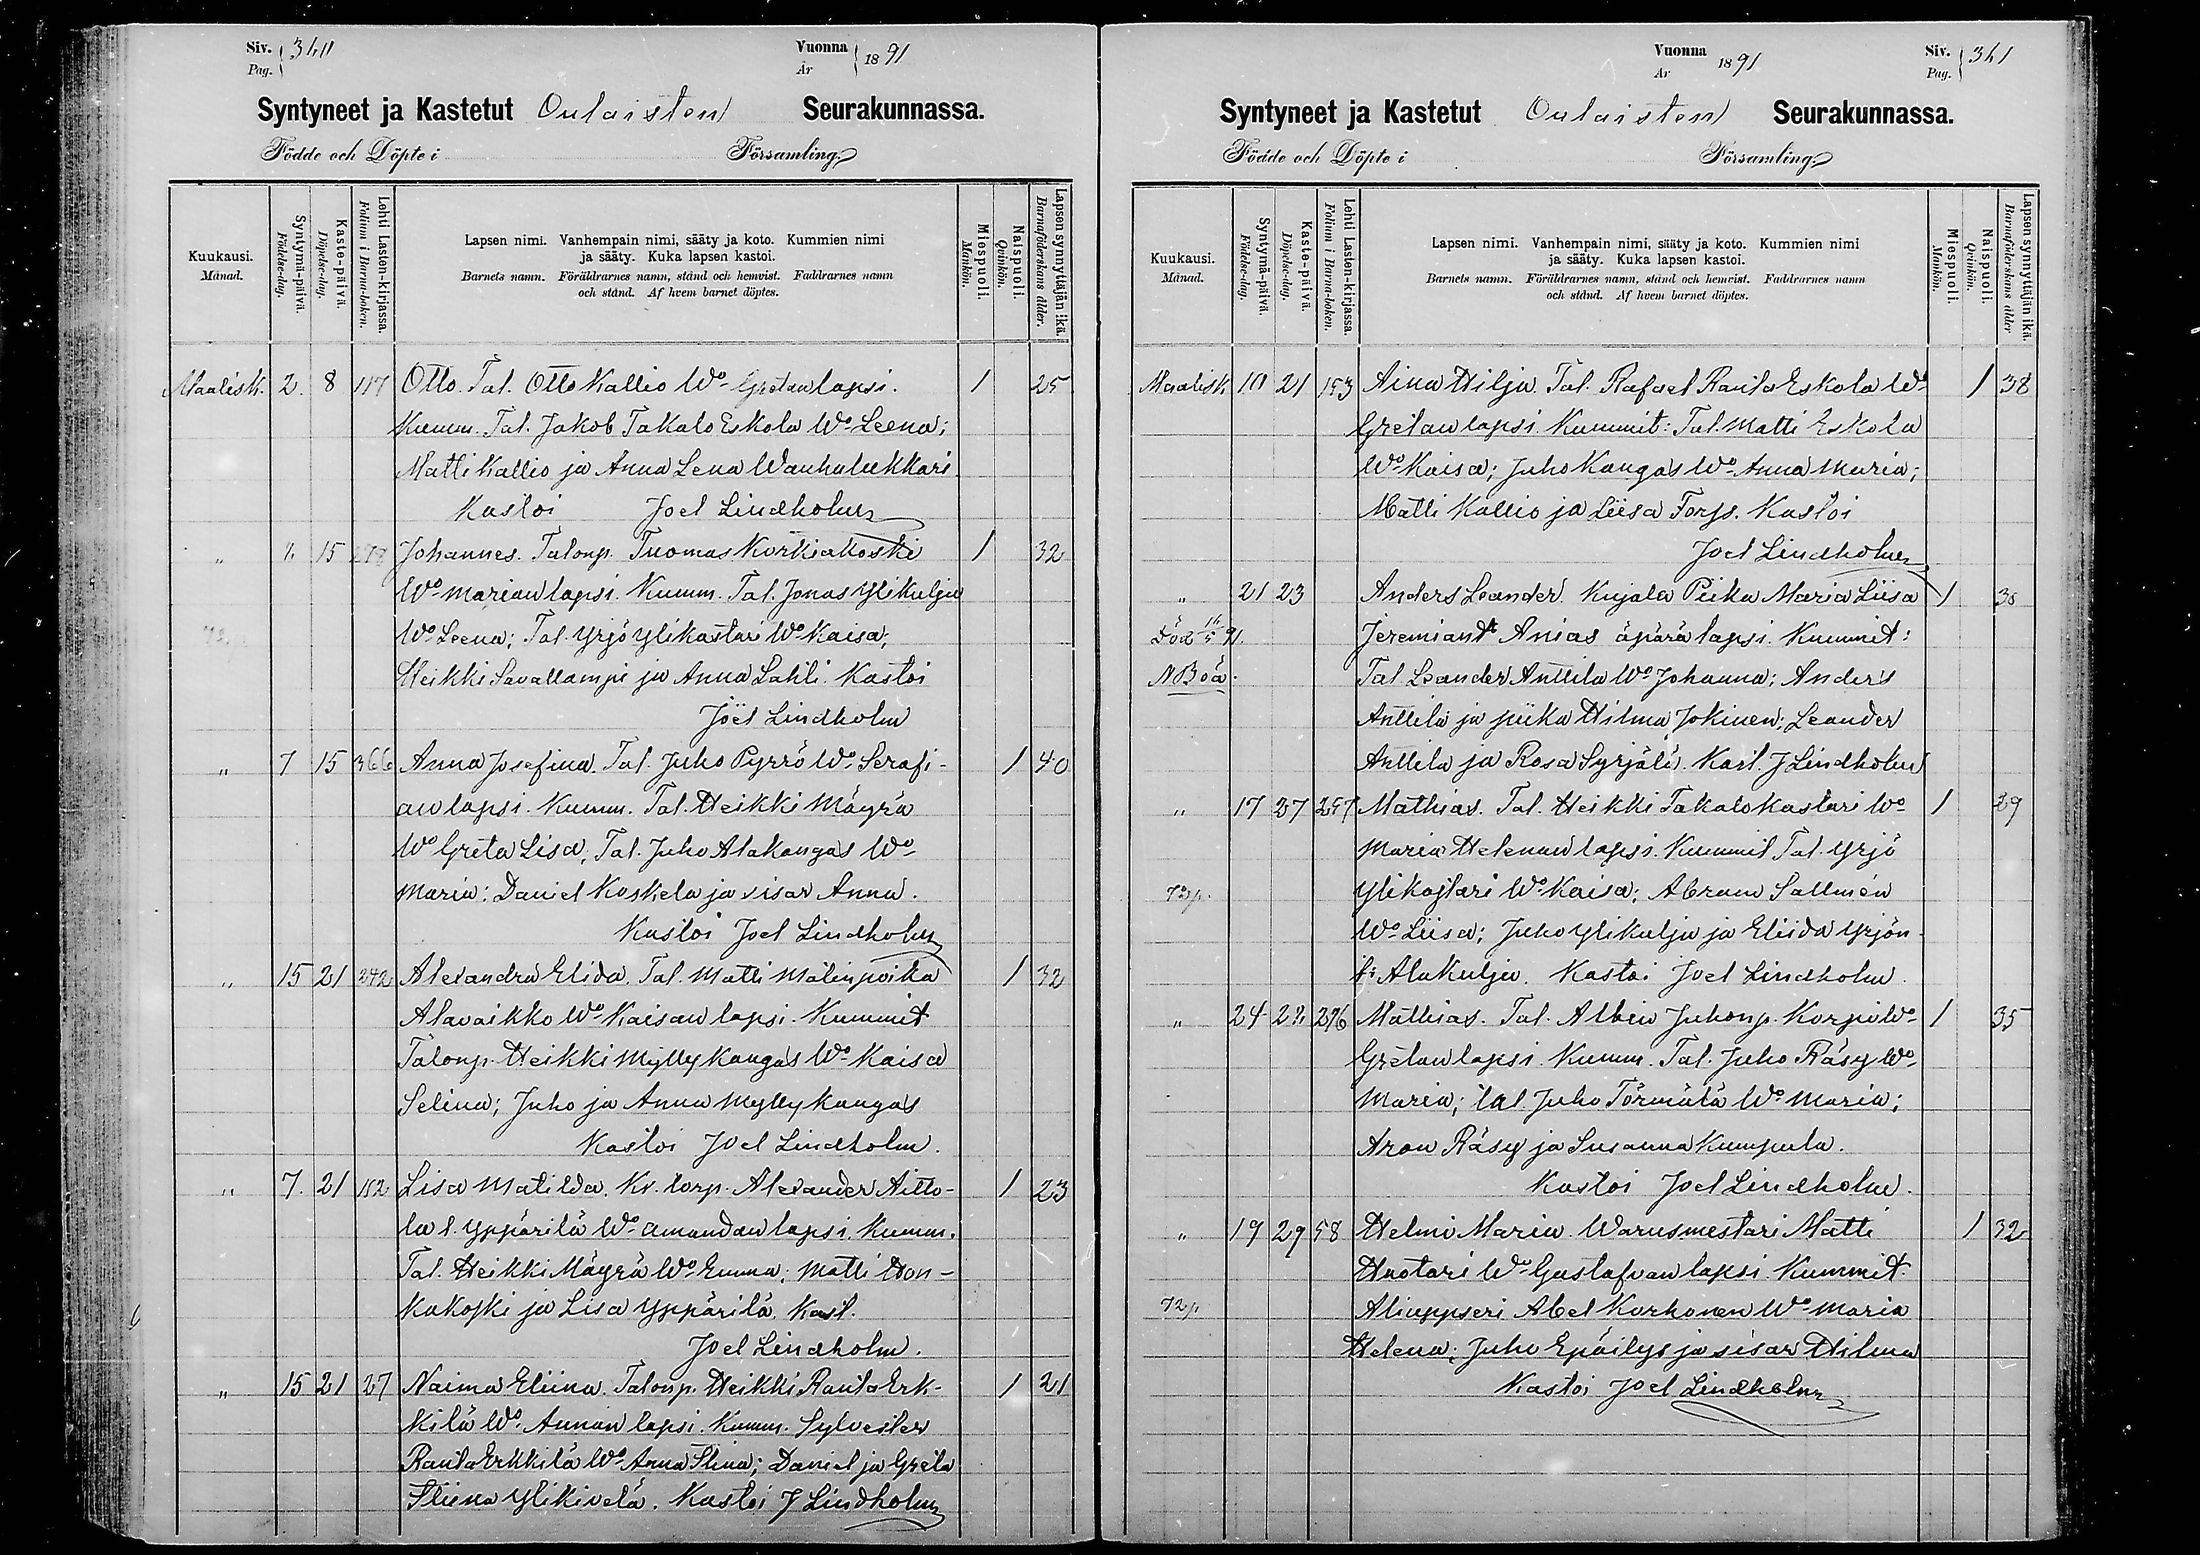 Siv. 340
Pag.
Vuonna 1891
År
Syntyneet ja Kastetut Oulaisten Seurakunnassa.
Födde och Döpte i Församling.
Kuukausi.
Månad.
Syntymä-päivä.
Födelse-dag.
Kaste-päivä.
Döpelse-dag.
Lehti Lasten-kirjassa.
Folium i Barna-boken.
Lapsen nimi. Vanhempain nimi, sääty ja koto. Kummien nimi
ja sääty. Kuka lapsen kastoi.
Barnets namn. Föräldrarnes namn, stånd och hemvist. Faddrarnes namn
och stånd. Af hvem barnet döptes.
Miespuoli.
Mankön.
Naispuoli.
Qvinkön.
Lapsen synnyttäjän ikä.
Barnaföderskans ålder.
Maalisk. 2. 8 117 Otto. Tal. Otto Kallio Wo Gretan lapsi. 1 25
Kumm. Tal. Jakob Takalo Eskola Wo Leena;
Matti Kallio ja Anna Lena Wanhalukkari.
Kastoi Joel Lindholm
„ 15 Johannes. Talonp. Tuomas Korkiakoski 1 32
Wo Marian lapsi. Kumm. Tal. Jonas Ylikulju
Wo Leena; Tal. Yrjö Ylikastari Wo Kaisa;
Heikki Savallampi ja Anna Lahti. Kastoi
Joël Lindholm
„ 7 15 366 Anna Josefina. Tal. Juho Pyrrö Wo Serafi- 1 40
an lapsi. Kumm. Tal. Heikki Mäyrä
Wo Greta Lisa; Tal. Juho Alakangas Wo
Maria; Daniel Koskela ja sisar Anna.
Kastoi Joel Lindholm
„ 15 21 242 Alexandra Elida. Tal. Matti Matinpoika 1 32
Alavaikko Wo Kaisan lapsi. Kummit
Talonp. Heikki Myllykangas Wo Kaisa
Selina; Juho ja Anna Myllykangas
Kastoi Joel Lindholm.
„ 7. 21 152 Lisa Matilda. Kv. torp. Alexander Aitto- 1 23
la l. Yppärilä Wo Amandan lapsi. Kumm.
Tal. Heikki Mäyrä Wo Emma; Matti Hon-
kakoski ja Lisa Yppärilä. Kast.
Joel Lindholm.
„ 15 21 27 Naima Eliina. Talonp. Heikki Rauta Erk- 1 21
kilä Wo Annan lapsi. Kumm. Sylvester
Rauta Erkkilä Wo Anna Stina; Daniel ja Greta
Stiina Ylikivelä. Kastoi J Lindholm
Vuonna 1891
År
Siv. 341
Pag.
Syntyneet ja Kastetut Oulaisten Seurakunnassa.
Födde och Döpte i Församling.
Kuukausi.
Månad.
Syntymä-päivä.
Födelse-dag.
Kaste-päivä.
Döpelse-dag.
Lehti Lasten-kirjassa.
Folium i Barna-boken.
Lapsen nimi. Vanhempain nimi, sääty ja koto. Kummien nimi
ja sääty. Kuka lapsen kastoi.
Barnets namn. Föräldrarnes namn, stånd och hemvist. Faddrarnes namn
och stånd. Af hvem barnet döptes.
Miespuoli.
Mankön.
Naispuoli.
Qvinkön.
Lapsen synnyttäjän ikä.
Barnaföderskans ålder
Maalisk 10 21 153 Aina Hilja. Tal. Rafael Rauta Eskola Wo 1 38
Gretan lapsi. Kummit: Tal. Matti Eskola
Wo Kaisa; Juho Kangas Wo Anna Maria;
Matti Kallio ja Liisa Forss. Kastoi
Joel Lindholm
„ 21 23 Anders Leander. Kujala Piika Maria Liisa 1
Död Jeremiant. Anias äpärä lapsi. Kummit:
Tal. Leander Anttila Wo Johanna; Anders
Anttila ja piika Hilma Jokinen; Leander
Anttila ja Rosa Syrjälä. Kast. J Lindholm
„ 17 27 297 Mathias. Tal. Heikki Takalo Kastari Wo 1 29
Maria Helenan lapsi. Kummit Tal. Yrjö
72p. Ylikastari Wo Kaisa; Abram Sallmén
Wo Liisa; Juho Ylikulju ja Eliida Yrjön
t: Alakulju. Kastoi Joel Lindholm.
„ 24 28 276 Mathias. Tal. Albin Juhonp. Korpi Wo 1 35
Gretan lapsi. Kumm. Tal. Juho Räsy Wo
Maria; tal Juho Törmälä Wo Maria;
Aron Räsy ja Susanna Kumpula.
Kastoi Joel Lindholm.
„ 19 29 58 Helmi Maria. Warusmestari Matti 1 32
Huotari Wo Gustafvan lapsi. Kummit.
72p Aliuppseri Abel Korhonen Wo Maria
Helena; Juho Epäilys ja sisar Hilma
Kastoi Joel Lindholm